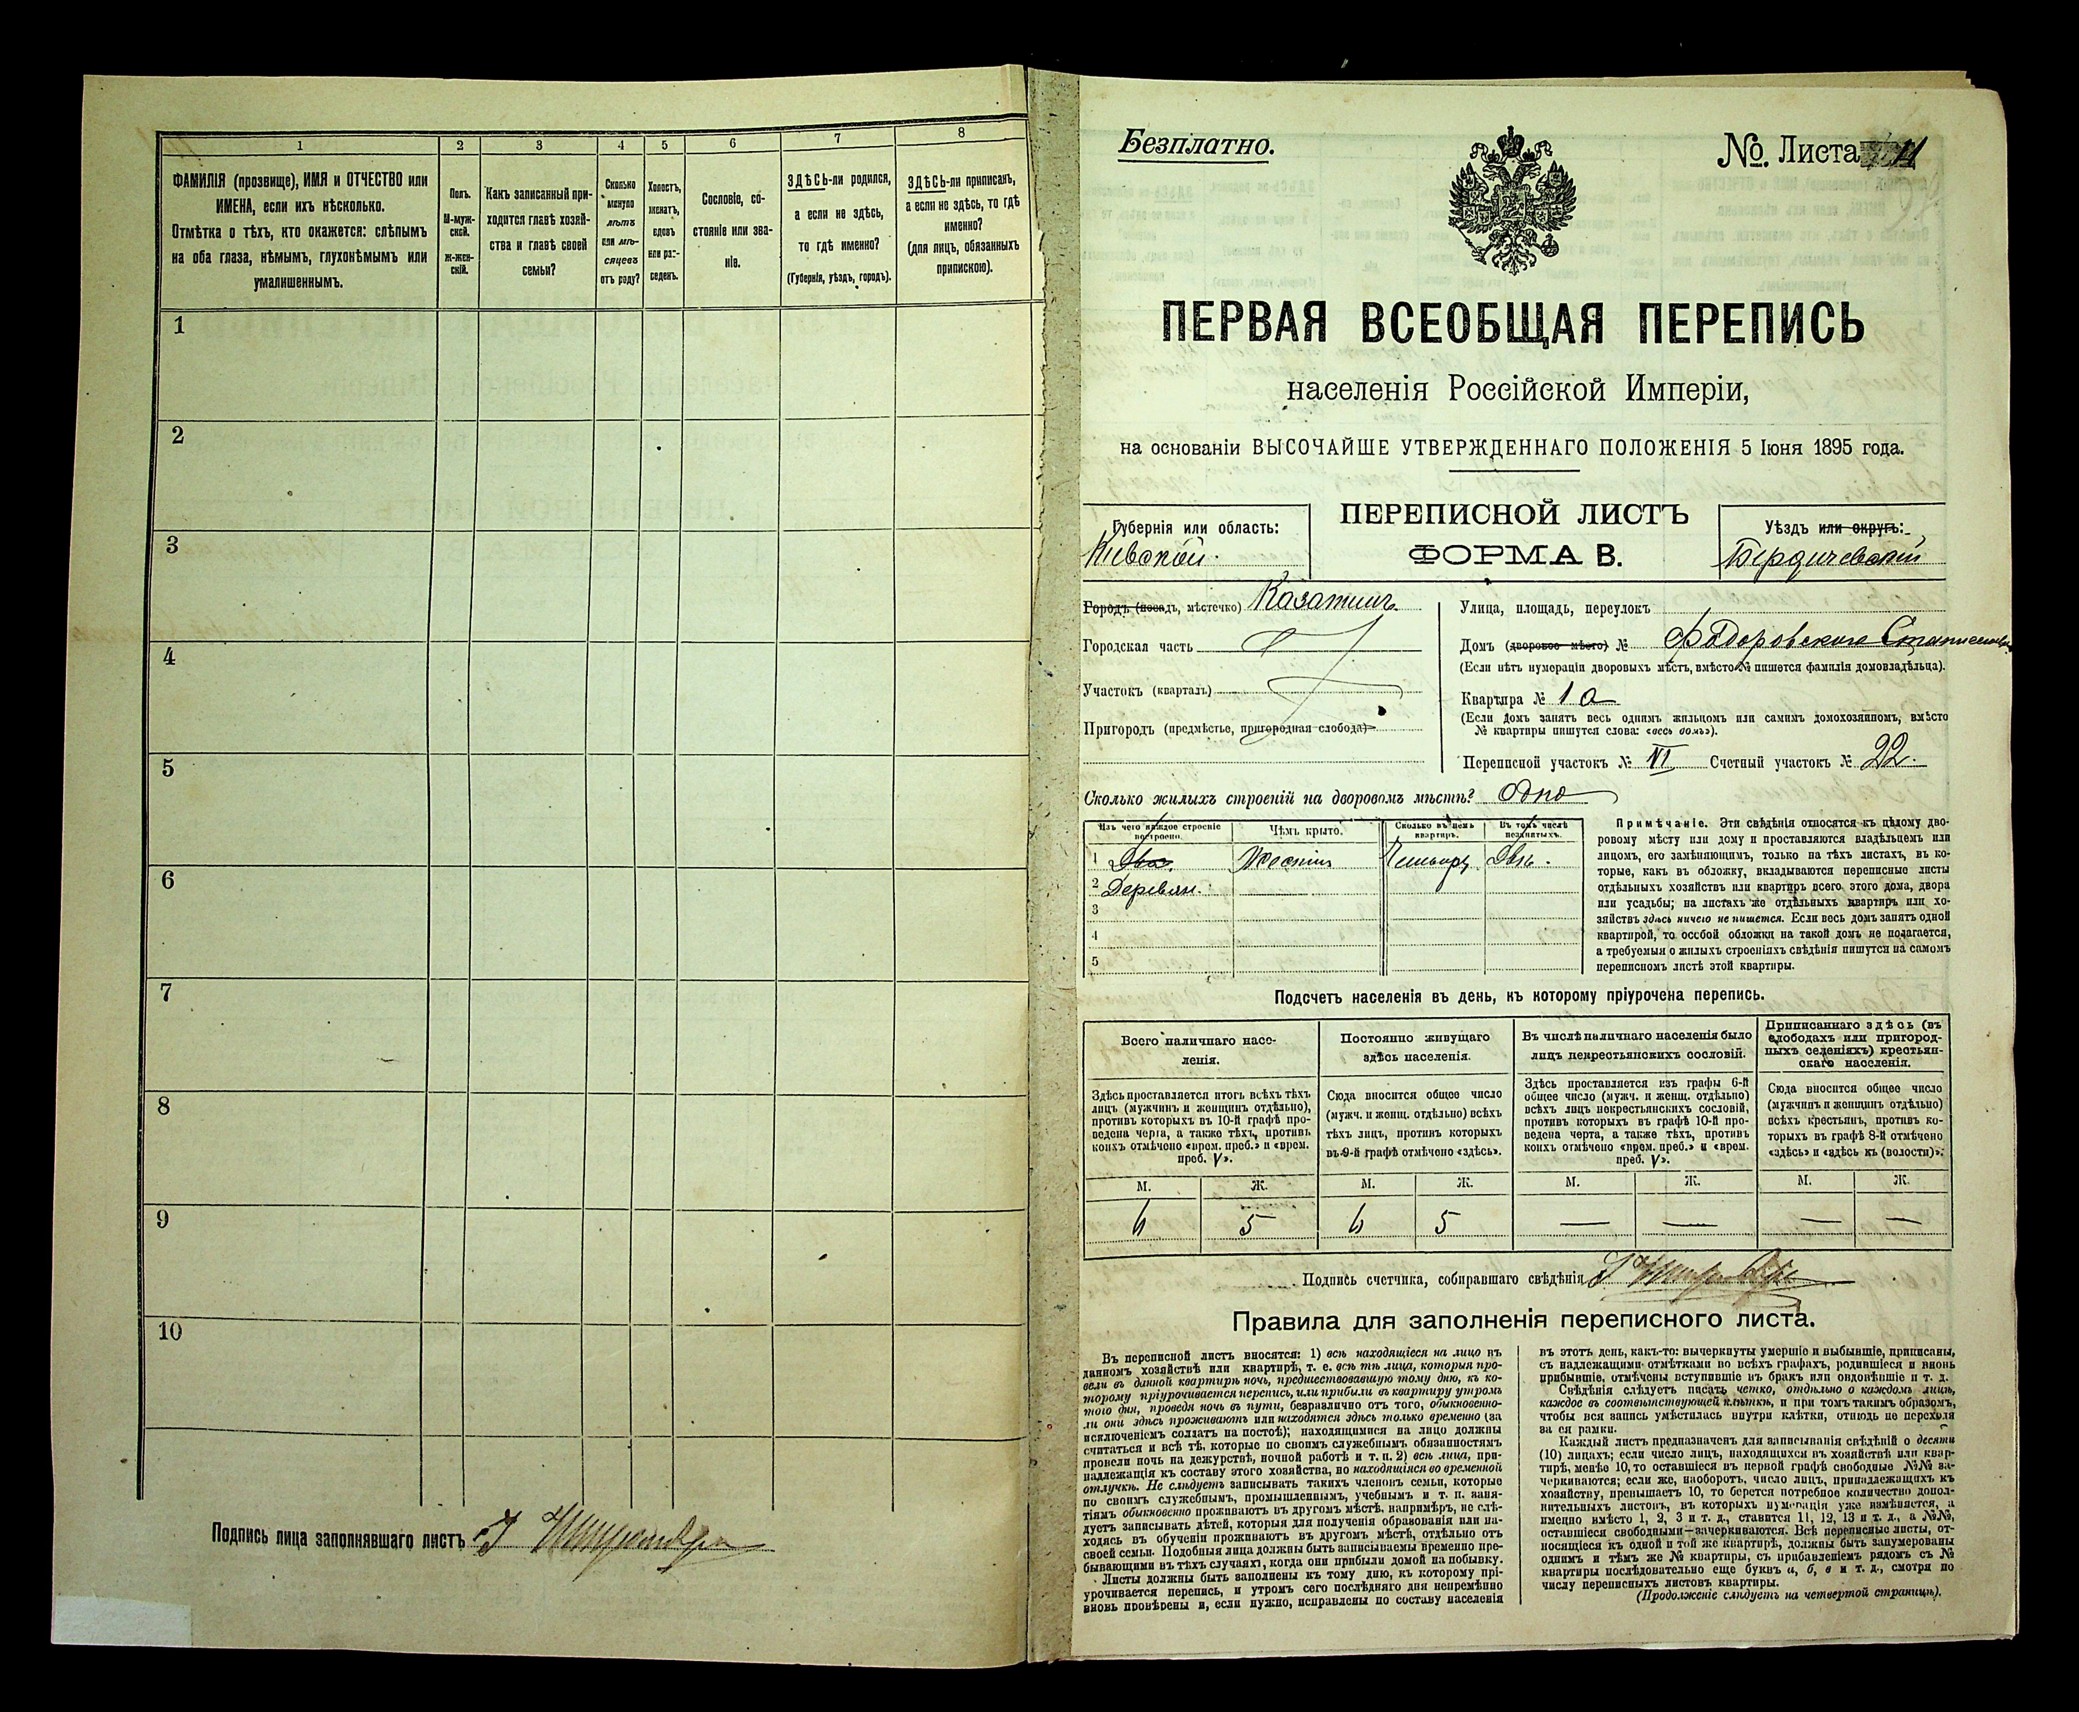 1
2
3
4
5
6
7
8
ФАМИЛІЯ (прозвище), ИМЯ и ОТЧЕСТВО или
ИМЕНА, если ихъ нѣсколько.
Отмѣтка о тѣхъ, кто окажется: слѣпымъ
на оба глаза, нѣмымъ, глухонѣмымъ или
умалишеннымъ.
Полъ.
М-муж-
ской.
ж-жен-
скій.
Какъ записанный при-
ходится главѣ хозяй-
ства и главѣ своей
семьи?
Сколько
минуло
лѣтъ
или мѣ-
сяцевъ
отъ роду?
Холостъ,
женатъ,
вдовъ
или раз-
веденъ.
Сословіе, со-
стояніе или зва-
ніе.
ЗДѢСЬ-ли родился,
а если не здѣсь,
то гдѣ именно?
(Губернія, уѣздъ, городъ).
ЗДѢСЬ-ли приписанъ,
а если не здѣсь, то гдѣ
именно?
(для лицъ, обязанныхъ
припискою).
1
2
3
4
5
6
7
8
9
10
Подпись лица заполнявшаго листъ
Безплатно.
№. Листа 11
ПЕРВАЯ ВСЕОБЩАЯ ПЕРЕПИСЬ
населенія Россійской Имперіи,
на основаніи ВЫСОЧАЙШЕ УТВЕРЖДЕННАГО ПОЛОЖЕНІЯ 5 Іюня 1895 года.
Губернія или область:
Кіевской.
ПЕРЕПИСНОЙ ЛИСТЪ
ФОРМА В.
Уѣздъ или округъ:
Бердичевскій
Городъ (посадъ, мѣстечко) Казатинъ
Городская часть
Участокъ (кварталъ)
Пригородъ (предмѣстье, пригородная слобода)
Улица, площадь, переулокъ
Домъ (дворовое мѣсто) №
(Если нѣтъ нумераціи дворовыхъ мѣстъ, вмѣсто № пишется фамилія домовладѣльца).
Квартира № 1 а
(Если домъ занятъ весь однимъ жильцомъ или самимъ домохозяиномъ, вмѣсто
№ квартиры пишутся слова: «весь домъ»).
Переписной участокъ № VI Счетный участокъ № 22.
Сколько жилыхъ строеній на дворовомъ мѣстѣ? одно
Изъ чего каждое строеніе
построено.
Чѣмъ крыто.
Сколько въ немъ
квартиръ.
Въ томъ числѣ
незанятыхъ.
1 Два. Жестью Четыре Двѣ.
2 Деревян.
3
4
5
Примѣчаніе. Эти свѣдѣнія относятся къ цѣлому дво-
ровому мѣсту или дому и проставляются владѣльцемъ или
лицомъ, его замѣняющимъ, только на тѣхъ листахъ, въ ко-
торые, какъ въ обложку, вкладываются переписные листы
отдѣльныхъ хозяйствъ или квартиръ всего этого дома, двора
или усадьбы; на листахъ же отдѣльныхъ квартиръ или хо-
зяйствъ здѣсь ничего не пишется. Если весь домъ занятъ одной
квартирой, то особой обложки на такой домъ не полагается,
а требуемыя о жилыхъ строеніяхъ свѣдѣнія пишутся на самомъ
переписномъ листѣ этой квартиры.
Подсчетъ населенія въ день, къ которому пріурочена перепись.
Всего наличнаго насе-
ленія.
Постоянно живущаго
здѣсь населенія.
Въ числѣ наличнаго населенія было
лицъ некрестьянскихъ сословій.
Приписаннаго здѣсь (въ
слободахъ или пригород-
ныхъ селеніяхъ) крестьян-
скаго населенія.
Здѣсь проставляется итогъ всѣхъ тѣхъ
лицъ (мужчинъ и женщинъ отдѣльно),
противъ которыхъ въ 10-й графѣ про-
ведена черта, а также тѣхъ, противъ
коихъ отмѣчено «врем. преб.» и «врем.
преб. V».
Сюда вносится общее число
(мужч. и женщ. отдѣльно) всѣхъ
тѣхъ лицъ, противъ которыхъ
въ 9-й графѣ отмѣчено «здѣсь».
Здѣсь проставляется изъ графы 6-й
общее число (мужч. и женщ. отдѣльно)
всѣхъ лицъ некрестьянскихъ сословій,
противъ которыхъ въ графѣ 10-й про-
ведена черта, а также тѣхъ, противъ
коихъ отмѣчено «врем. преб.» и «врем.
преб. V».
Сюда вносится общее число
(мужчинъ и женщинъ отдѣльно)
всѣхъ крестьянъ, противъ ко-
торыхъ въ графѣ 8-й отмѣчено
«здѣсь» и «здѣсь къ (волости)».
М. Ж. М. Ж. М. Ж. М. Ж.
6 5 6 5 — — — —
Подпись счетчика, собиравшаго свѣдѣнія
Правила для заполненія переписного листа.
Въ переписной листъ вносятся: 1) всѣ находящіеся на лицо въ
данномъ хозяйствѣ или квартирѣ, т. е. всѣ тѣ лица, которыя про-
вели въ данной квартирѣ ночь, предшествовавшую тому дню, къ ко-
торому пріурочивается перепись, или прибыли въ квартиру утромъ
того дня, проведя ночь въ пути, безразлично отъ того, обыкновенно-
ли они здѣсь проживаютъ или находятся здѣсь только временно (за
исключеніемъ солдатъ на постоѣ); находящимися на лицо должны
считаться и всѣ тѣ, которые по своимъ служебнымъ обязанностямъ
провели ночь на дежурствѣ, ночной работѣ и т. п. 2) всѣ лица, при-
надлежащія къ составу этого хозяйства, но находящіяся во временной
отлучкѣ. Не слѣдуетъ записывать такихъ членовъ семьи, которые
по своимъ служебнымъ, промышленнымъ, учебнымъ и т. п. заня-
тіямъ обыкновенно проживаютъ въ другомъ мѣстѣ, напримѣръ, не слѣ-
дуетъ записывать дѣтей, которыя для полученія образованія или на-
ходясь въ обученіи проживаютъ въ другомъ мѣстѣ, отдѣльно отъ
своей семьи. Подобныя лица должны быть записываемы временно пре-
бывающими въ тѣхъ случаяхъ, когда они прибыли домой на побывку.
Листы должны быть заполнены къ тому дню, къ которому прі-
урочивается перепись, и утромъ сего послѣдняго дня непремѣнно
вновь провѣрены и, если нужно, исправлены по составу населенія
въ этотъ день, какъ-то: вычеркнуты умершіе и выбывшіе, приписаны,
съ надлежащими отмѣтками во всѣхъ графахъ, родившіеся и вновь
прибывшіе, отмѣчены вступившіе въ бракъ или овдовѣвшіе и т. д.
Свѣдѣнія слѣдуетъ писать четко, отдѣльно о каждомъ лицѣ,
каждое въ соотвѣтствующей клѣткѣ, и при томъ такимъ образомъ,
чтобы вся запись умѣстилась внутри клѣтки, отнюдь не переходя
за ея рамки.
Каждый листъ предназначенъ для записыванія свѣдѣній о десяти
(10) лицахъ; если число лицъ, находящихся въ хозяйствѣ или квар-
тирѣ, менѣе 10, то оставшіеся въ первой графѣ свободные №№ за-
черкиваются; если же, наоборотъ, число лицъ, принадлежащихъ къ
хозяйству, превышаетъ 10, то берется потребное количество допол-
нительныхъ листовъ, въ которыхъ нумерація уже измѣняется, а
именно вмѣсто 1, 2, 3 и т. д., ставится 11, 12, 13 и т. д., а №№,
оставшіеся свободными—зачеркиваются. Всѣ переписные листы, от-
носящіеся къ одной и той же квартирѣ, должны быть занумерованы
однимъ и тѣмъ же № квартиры, съ прибавленіемъ рядомъ съ №
квартиры послѣдовательно еще буквъ а, б, в и т. д., смотря по
числу переписныхъ листовъ квартиры.
(Продолженіе слѣдуетъ на четвертой страницѣ).